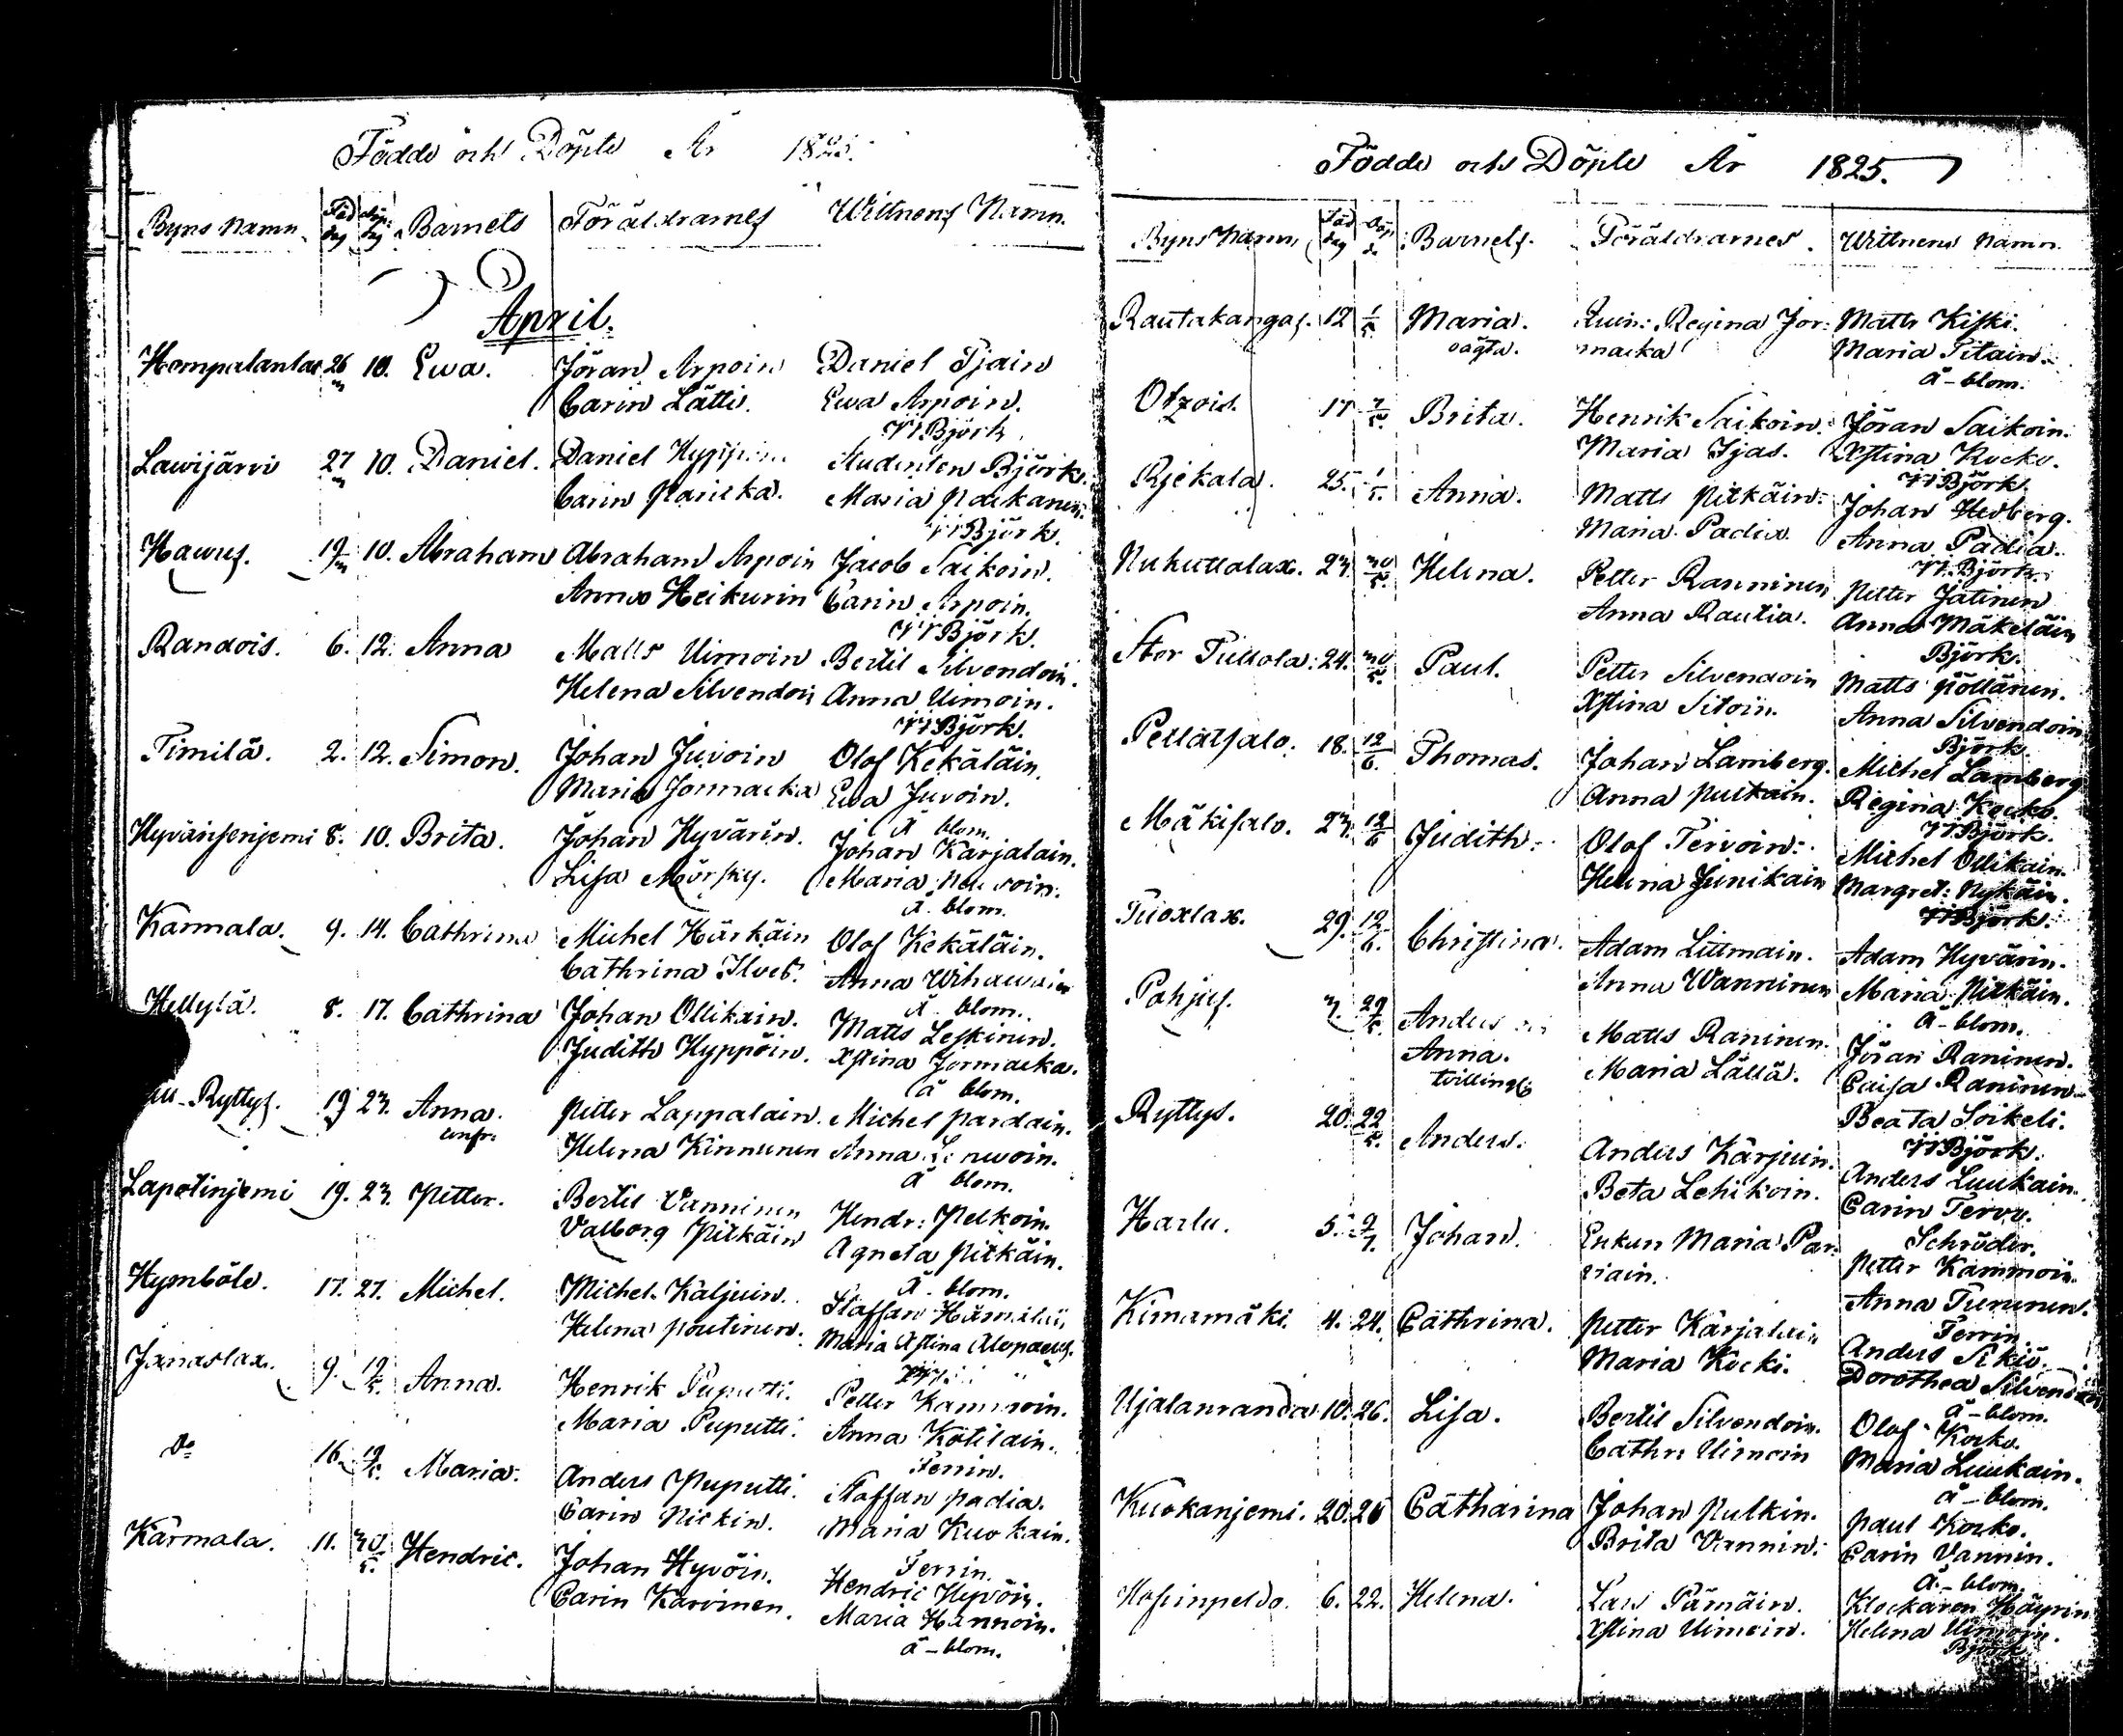 Födde och Döpte År 1825.
Byns Namn Föd dag döp: dag Barnets Föräldrarnes Wittnens Namn.
April.
26 10. Ewa. Jöran Arpoin Daniel Tjain
m Carin Lätti. Ewa Arpoin.
Björk
Lawijärvi 27 10. Daniel. Daniel Studenten Björk.
m Carin Maria
Björk.
Hawus. 19 10. Abraham Abraham Arpoin Jacob Saikoin.
m Anna Heikurin Carin Arpoin.
Björk.
Randois. 6. 12. Anna Matts Uimoin Bertil Silvendoin.
Helena Silvendoin Anna Uimoin.
Björk.
Timilä. 2. 12. Simon. Johan Juvoin Olof Kekäläin.
Maria Jormacka Ewa Juvoin.
Ä blom.
8. 10. Brita. Johan Hyvärin. Johan Karjalain.
Lisa Mörsky. Maria
ä. blom.
Karmala. 9. 14. Cathrina Michel Härkäin Olof Kekäläin.
Cathrina Ilves. Anna
Ä blom.
Hellylä. 8. 17. Cathrina Johan Ollikain. Matts Leskinen.
Judith Hyppöin. Xstina Jormacka.
ä blom.
Ryttys. 19 23. Anna. Petter Lappalain. Michel Pardain.
Helena Kinnunen Anna
ä blom.
Lapotinjemi 19. 23. Petter. Bertil Vanninen Hendr: Pelkoin.
Valborg Pitkäin Agneta Pitkäin.
ä. blom.
Hymböle. 17. 27. Michel. Michel Kaljuin. Staffan
Helena Poutinen. Maria Xstina Alopaeus.
Janaslax. 9. 12/5. Anna. Henrik Puputti. Petter Kammoin.
Maria Puputti. Anna Kotilain.
Ferrin.
Do 16. 12/5. Maria. Anders Puputti. Staffan Padia.
Carin Maria Kuokain.
Ferrin.
Karmala. 11. 30/5. Hendric. Johan Hyvöin. Hendric Hyvöin.
Carin Karvinen. Maria Hannoin.
ä-blom.
Födde och Döpte År 1825.
Byns Namn Föd dag Döp d. Barnets. Föräldrarnes. Wittnens Namn.
Rautakangas. 12 1/5 Maria. Regina Jor- Matts Kiski.
oägta. macka Maria Pitäin.
ä-blom.
Otzois. 17 7/5. Brita. Henrik Saikoin. Jöran Saikoin.
Maria Ijas. Xstina Kocko.
Björk.
Rjekala. 25. 1/5. Anna. Matts Pitkäin. Johan Hedberg.
Maria Padia Anna Padia.
Björk.
23. 30/5. Helena. Petter Ranninen Petter Jatinen
Anna Rautia. Anna Mäkeläin
Björk.
Stor Tullola. 24. 30/5. Paul. Petter Silvendoin Matts Pöllänen.
Xstina Sitoin. Anna Silvendoin
Björk.
18. 12/6. Thomas. Johan Lamberg. Michel Lamberg
Anna Regina Kocko.
Björk.
Mäkisalo. 23. 12/6 Judith. Olof Tervoin. Michel Ollikain.
Helena Junikain Margret: Nykäin.
Björk.
Tuoxlax. 29. 12/6. Christina. Adam Littmain. Adam Hyvärin.
Anna Wanninen Maria Pitkäin.
ä-blom.
Pohjus. 3. 29/5. Anders Matts Raninen. Jöran Raninen.
Anna. Maria Lällä. Caisa Raninen.
tvillingb Beata Soikeli.
Björk.
Ryttys. 20. 22/5. Anders. Anders Kärjuin. Anders Luukain.
Beta Lehikoin. Carin Tervo.
Schröder.
Harlu. 5. 9/7. Johan. Enkan Maria Par- Petter Kammoin.
Anna Turunen.
Ferrin.
Kimamäki 4. 24. Cathrina. Petter Karjalain Anders Sikiö.
Maria Kocki. Dorothea Silvendoin
ä-blom.
Ujalanranda. 10. 26. Lisa. Bertil Silvendoin. Olof Kocko.
Cathr: Uimoin Maria Luukain.
ä-blom.
Kuokanjemi. 20. 26 Catharina Johan Pulkin. Paul Kocko.
Brita Vannin. Carin Vannin.
Ä-blom.
6. 22. Helena. Lars Pämäin. Klockaren Häyrin
Xstina Uimoin. Helena Uimoin.
Björk